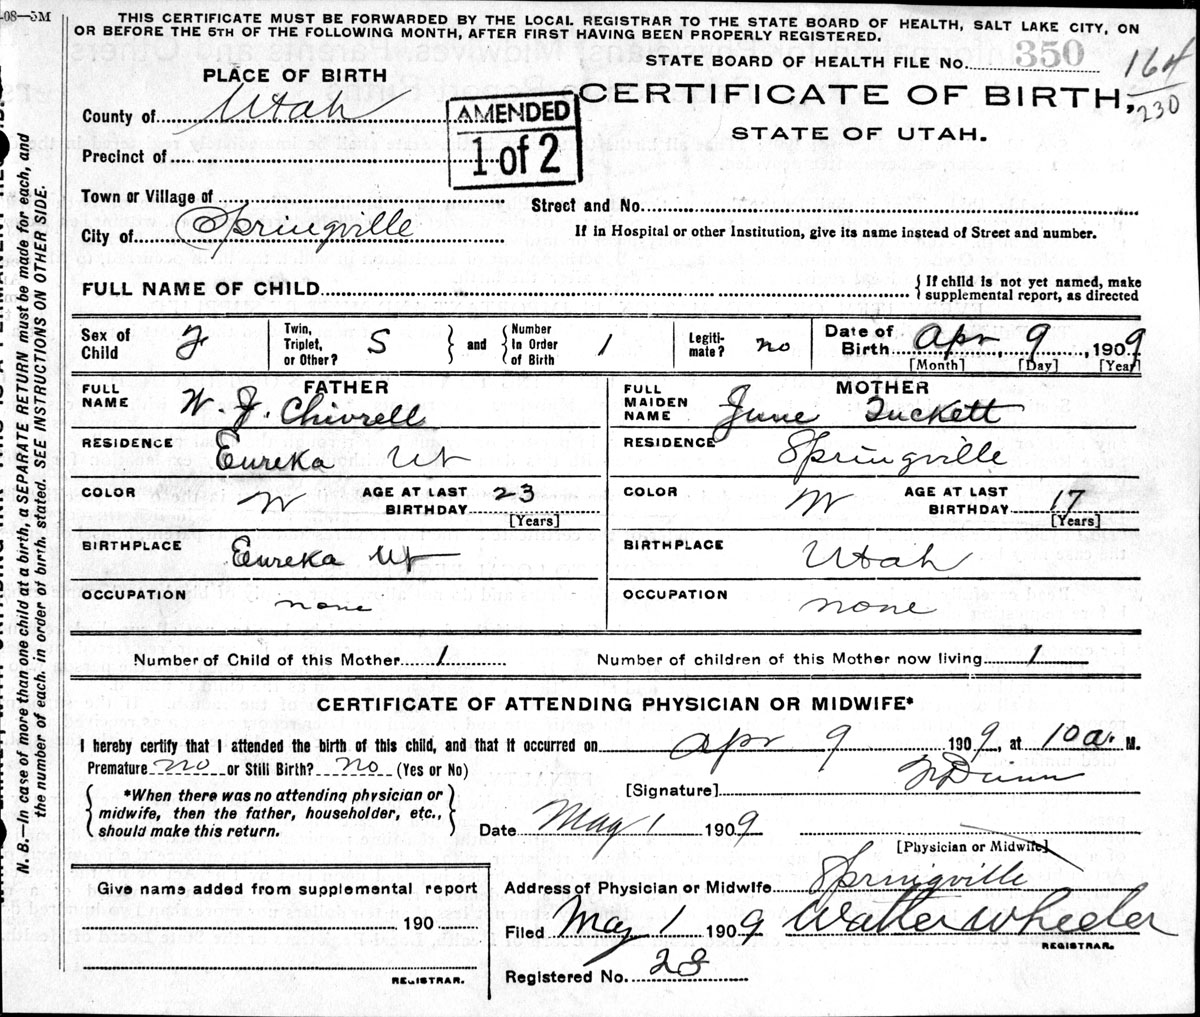 -08—5M
THIS CERTIFICATE MUST BE FORWARDED BY THE LOCAL REGISTRAR TO THE STATE BOARD OF HEALTH, SALT LAKE CITY, ON
OR BEFORE THE 5TH OF THE FOLLOWING MONTH, AFTER FIRST HAVING BEEN PROPERLY REGISTERED.
STATE BOARD OF HEALTH FILE NO. 350
164
230
PLACE OF BIRTH
CERTIFICATE OF BIRTH,
STATE OF UTAH.
County of Utah
AMENDED
1 of 2
Precinct of
Town or Village of
Street and No.
City of Springville
If in Hospital or other Institution, give its name instead of Street and number.
FULL NAME OF CHILD
{ If child is not yet named, make
supplemental report, as directed
Sex of Child F
Twin, Triplet, or Other? S
and
Number In Order of Birth 1
Legiti-mate? no
Date of Birth Apr 9, 1909
[Month] [Day] [Year]
FATHER
FULL NAME W. J. Chivrell
RESIDENCE Eureka Ut
COLOR W
AGE AT LAST BIRTHDAY 23
[Years]
BIRTHPLACE Eureka Ut
OCCUPATION none
MOTHER
FULL MAIDEN NAME June Tuckett
RESIDENCE Springville
COLOR W
AGE AT LAST BIRTHDAY 17
[Years]
BIRTHPLACE Utah
OCCUPATION none
Number of Child of this Mother 1
Number of children of this Mother now living 1
CERTIFICATE OF ATTENDING PHYSICIAN OR MIDWIFE*
I hereby certify that I attended the birth of this child, and that it occurred on Apr 9 1909, at 10 a. M.
Premature no or Still Birth? no (Yes or No)
[Signature] Dunn
*When there was no attending physician or
midwife, then the father, householder, etc.,
should make this return.
Date May 1 1909
[Physician or Midwife]
Give name added from supplemental report
190
REGISTRAR.
Address of Physician or Midwife Springville
Filed May 1 1909 Walter Wheeler
REGISTRAR.
Registered No. 28
N. B.—In case of more than one child at a birth, a SEPARATE RETURN must be made for each, and
the number of each, in order of birth, stated. SEE INSTRUCTIONS ON OTHER SIDE.